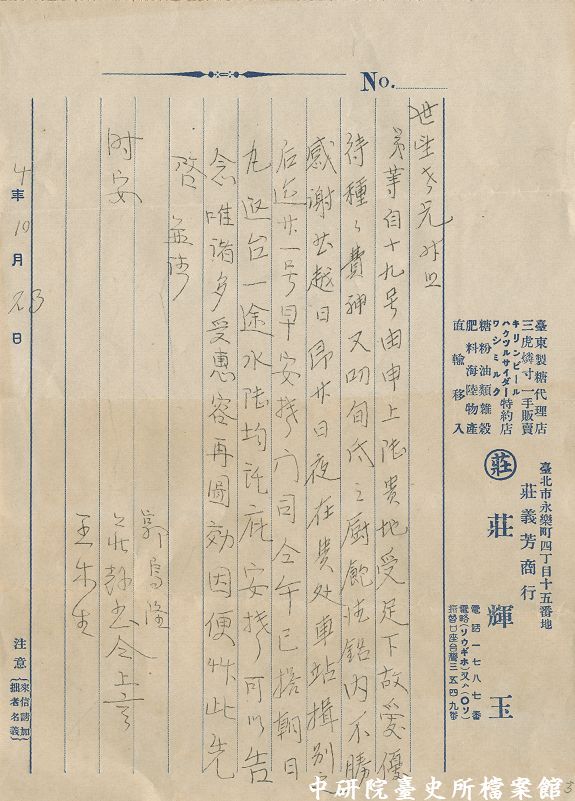 No.
臺東製糖代理店
三虎燐寸一手販賣
キリンビール
ハウツルサイダー 特約店
ワシミルク
糖粉油類雜穀
肥料海陸物產
直輸移入
臺北市永樂町四丁目十五番地
莊義芳商行
莊 莊輝玉
電話一七八七番
電略(リウギホ)又ハ(〇ソ)
振替口座台灣三五四九番
弟等自十九号由申上陸貴地受足下故愛優
待種々費神又叨旬氏之厨飽德銘內不勝
感謝並越日昂廿日夜在貴处車站揖別
后迄廿一号早安抵门司今午已搭朝日
丸返台一途水陸均託庇安抵可以告
念唯諸多受惠容再圖効因便艸此先
啓 並請
时安
郭烏隆
王朱生
4年10月23日
注意 來信請加拙者名義
中研院臺史所檔案館